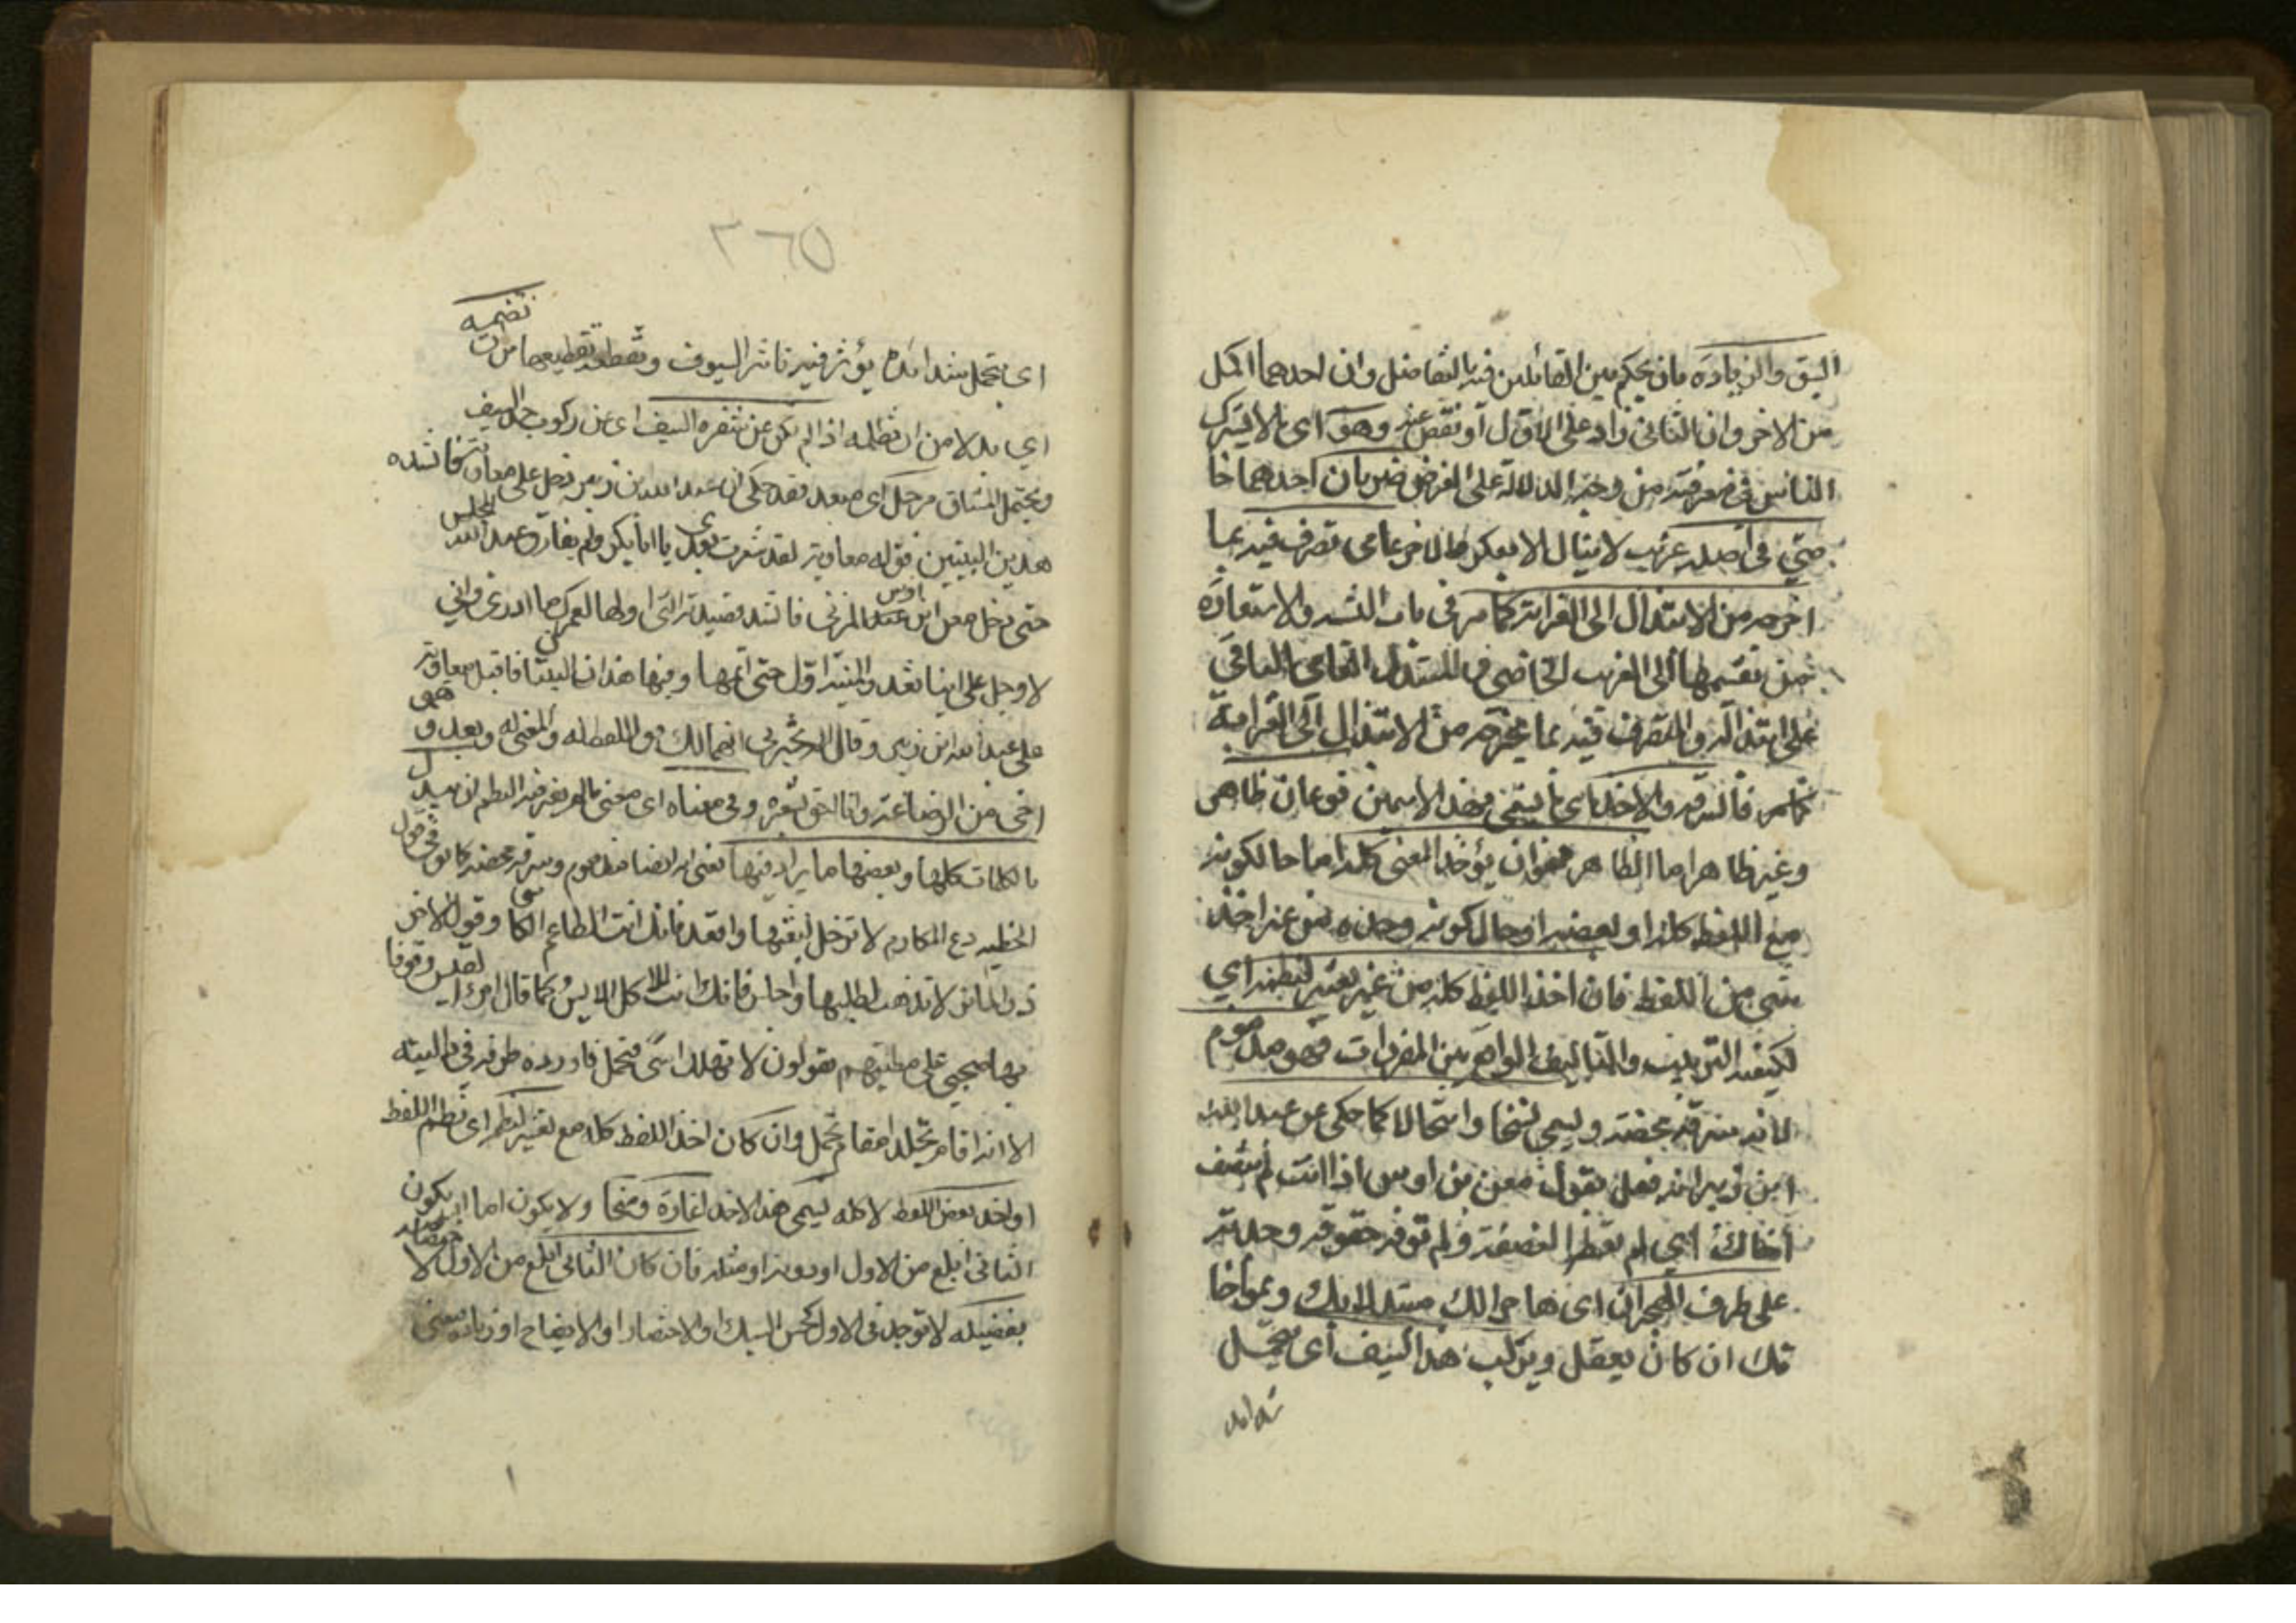 السبق والزيادة بان يحكم بين القائلين فيه بالتفاضل وان احدهما اكمل
من الاخر وان الثانى زاد على الاول او نقص عنه وهو اى ما لا يشترك
الناس فى معرفته من وجه الدلالة على الغرض ضربان احدهما خا
صى فى اصله غريب لا ينال الا بفكر والاخر عامى تصرف فيه بما
اخرجه من الابتذال الى الغرابة كما مر فى باب التشبيه والاستعارة
من تقسيمها الى الغريب الخاصى والمبتذل العامى الباقى
على ابتذاله والمتصرف فيه بما يخرجه من الابتذال الى الغرابة
فالسرقة والاخذ اى ما يسمى بهذا الاسمين نوعان ظاهر
وغير ظاهر اما الظاهر فهو ان يؤخذ المعنى كله اما حال كونه
مع اللفظ كله او بعضه او حال كونه وحده من غير اخذ
شىء من اللفظ فان اخذ اللفظ كله من غير تغيير لنظمه اى
لكيفية الترتيب والتاليف الواقع بين المفردات فهو مذموم
لانه سرقة محضة ويسمى نسخا وانتحالا كما حكى عن عبد الله
ابن زبير انه فعل بقول معن بن اوس اذا انت لم تنصف
اخاك اى لم تعطه النصفة ولم توفه حقوقه وجدته
على طرف الهجران اى هاجرا لك مبتدلا بك وبمواخا
تك ان كان يعقل ويركب حد السيف اى يتحمل
شدائد
٢٦٥
اى يتحمل شدائد يؤثر فيه تاثير السيوف وتقطعه تقطيعها من ان
تضيمه
اى بدلا من ان تظلمه اذا لم يكن عن شفرة السيف اى عن ركوب حد السيف
ويحتمل المشاق مزحل اى مبعد فقد حكى ان عبد الله بن زبير دخل على معاوية فانشده
هذين البيتين فقال له معاوية لقد شعرت بعدى يا ابا بكر ولم يفارق عبد الله المجلس
حتى دخل معن ابن اوس المزنى فانشد قصيدته التى اولها لعمرك ما ادرى وانى
لاوجل على اينا تغدو المنية اول حتى اتمها وفيها هذان البيتان فاقبل معاوية
على عبد الله ابن زبير وقال الم تخبرنى انهما لك فقال اللفظ له والمعنى له وبعد فهو
اخى من الرضاعة وانا احق بشعره وفى معناه اى معنى ما لم يغير فيه النظم ان يبدل
بالكلمات كلها او بعضها ما يرادفها يعنى انه ايضا مذموم وسرقة محضة كما يقال فى قول
الحطيئة دع المكارم لا ترحل لبغيتها واقعد فانك انت الطاعم الكا وقول الاخر
ذر المآثر لا تذهب لطلبها واجلس فانك انت الآكل اللابس وكما قال امرؤ القيس وقوفا
بها صحبى على مطيهم يقولون لا تهلك اسى وتحمل فاورده طرفة فى داليته
الا انه اقام تجلد مقام تجمل وان كان اخذ اللفظ كله مع تغيير لنظمه اى نظم اللفظ
او اخذ بعض اللفظ لا كله يسمى هذا الاخذ اغارة ومسخا ولا يكون اما ان يكون
الثانى ابلغ من الاول او دونه او مثله فان كان الثانى ابلغ من الاول لاختصاصه
بفضيلة لا توجد فى الاول كحسن السبك او الاختصار او الايضاح او زيادة معنى